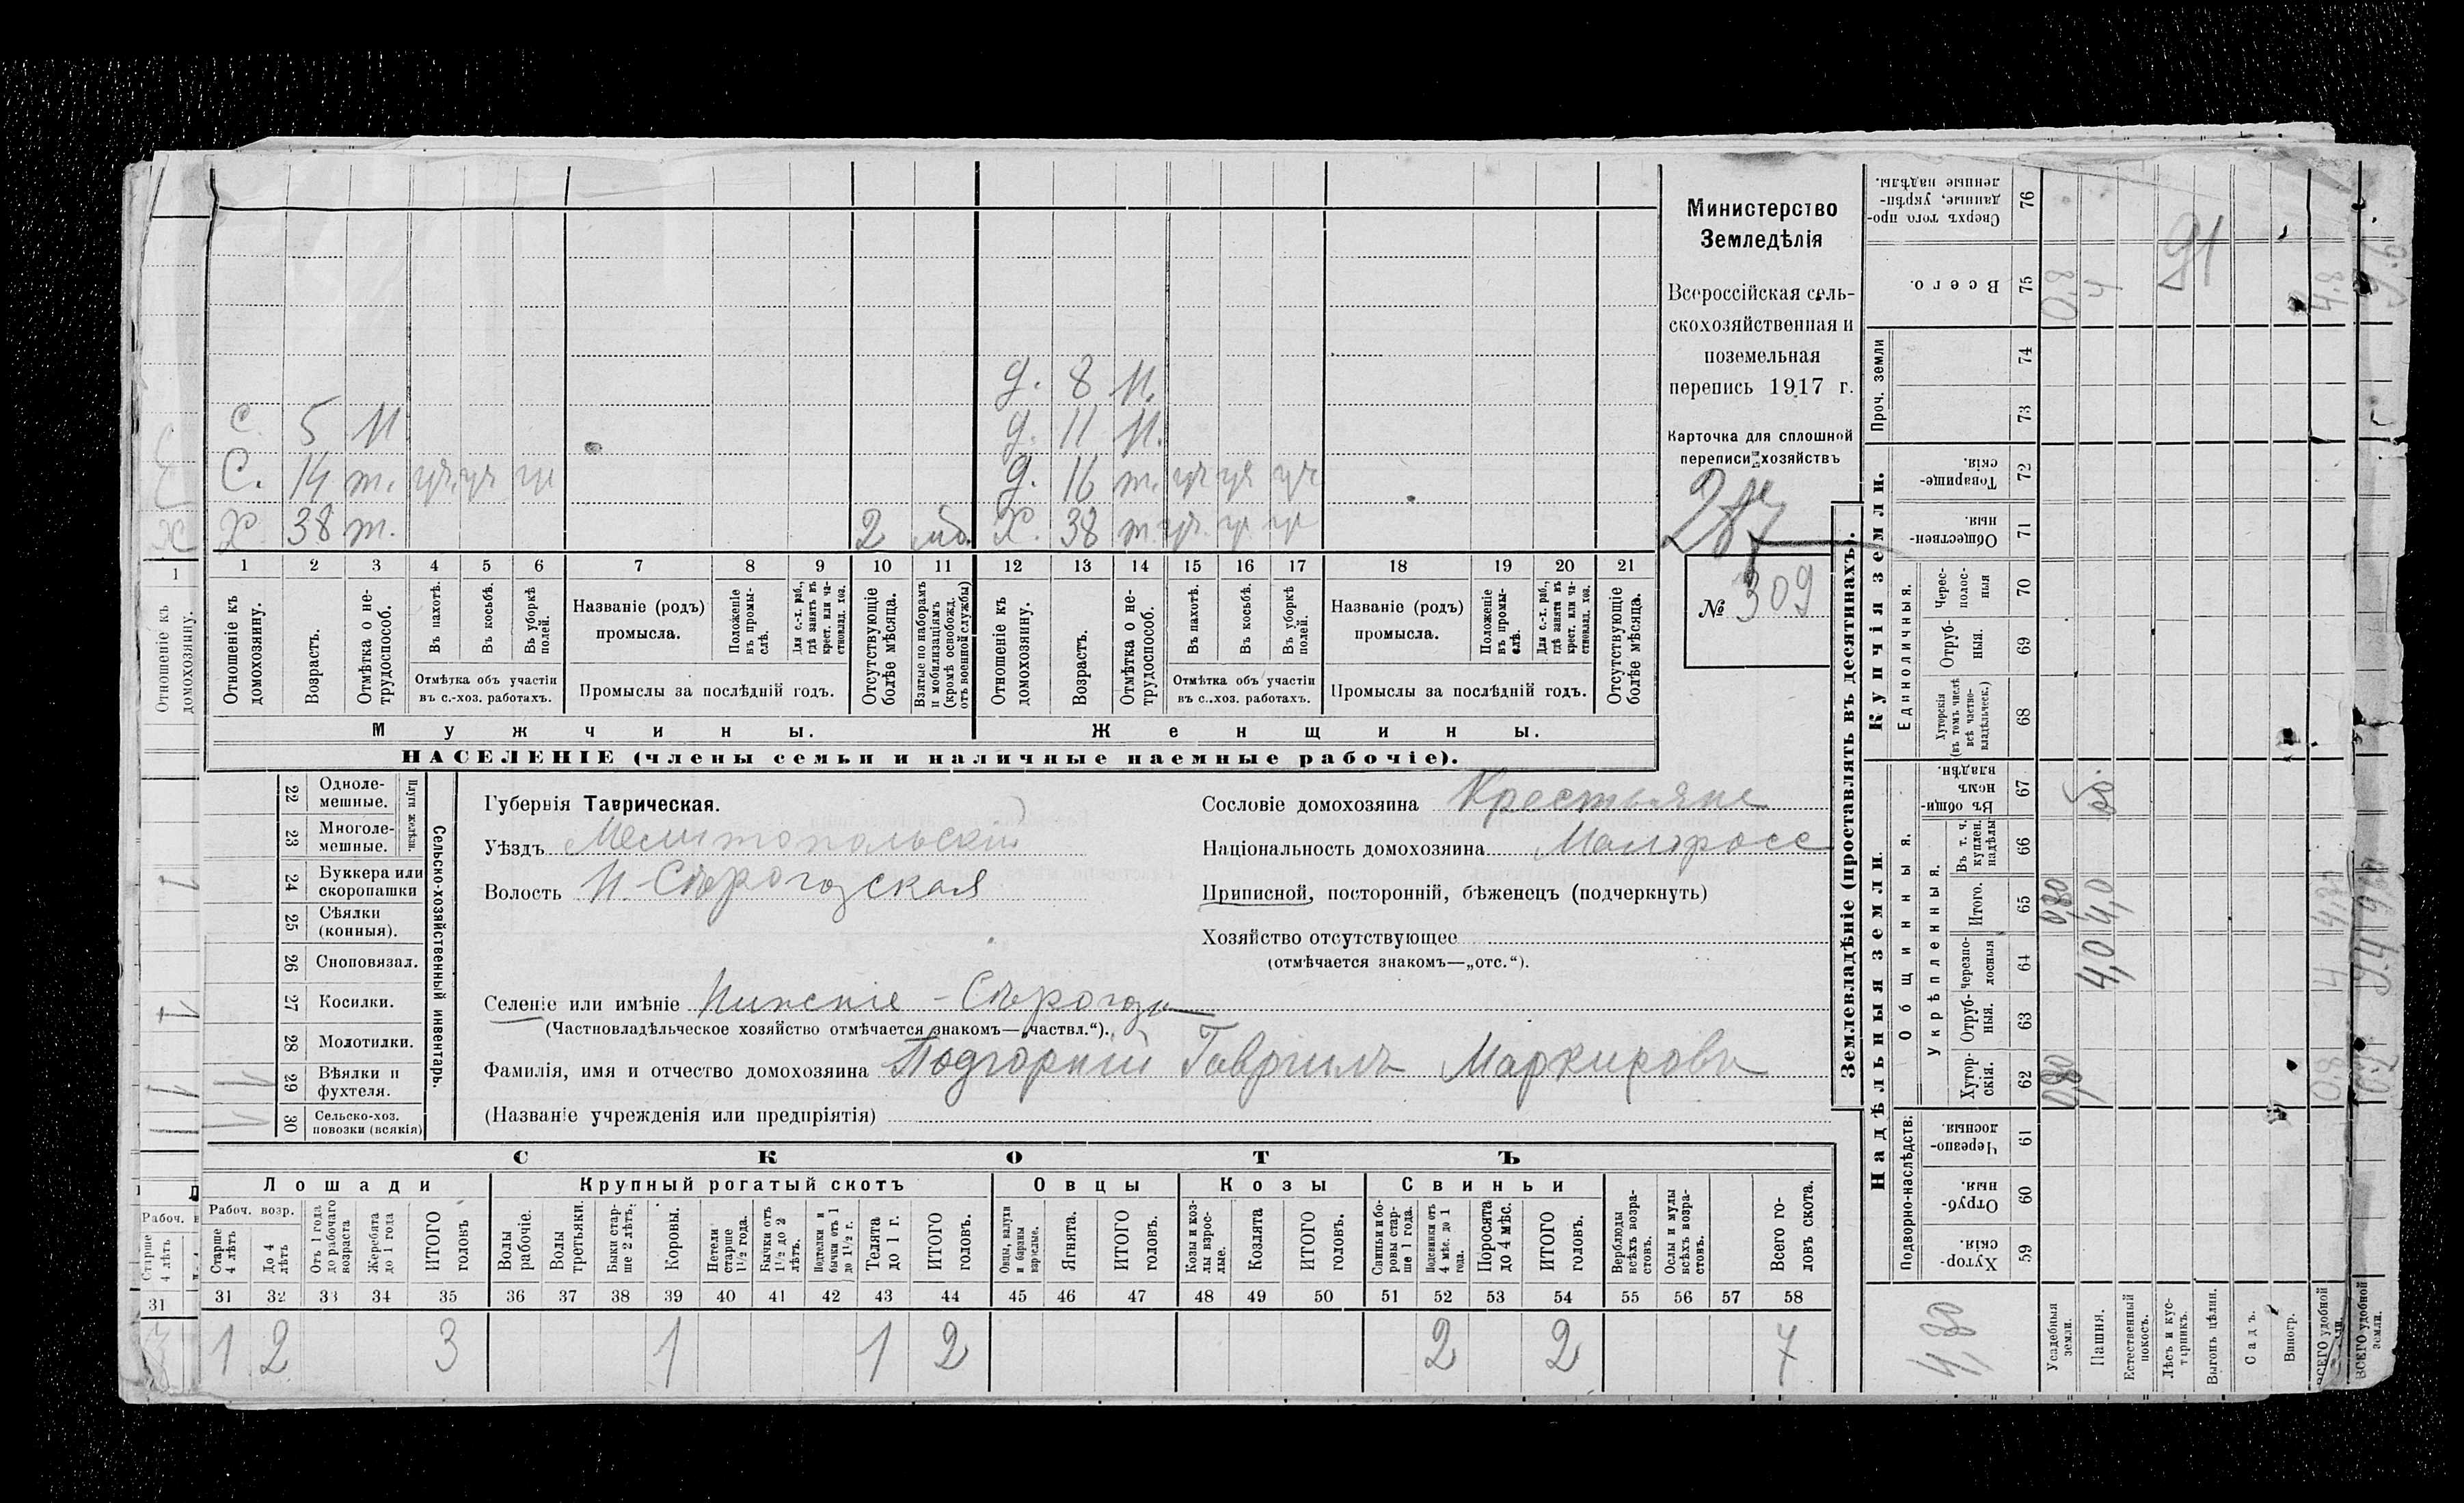 д. 8 н.
С. 5 н д. 11 н.
С. 14 т. уч. уч уч д. 16 т. уч уч уч
Х. 38 т. 2 моб. Х. 38 т. уч. уч уч
1 2 3 4 5 6 7 8 9 10 11 12 13 14 15 16 17 18 19 20 21
Отношеніе къ домохозяину.
Возрастъ.
Отмѣтка о не-трудоспособ.
Въ пахотѣ.
Въ косьбѣ.
Въ уборкѣ полей.
Отмѣтка объ участіи въ с.-хоз. работахъ.
Названіе (родъ) промысла.
Положеніе въ промы-слѣ.
Для с.-х. раб., гдѣ занятъ въ крест. или ча-стновлад. хоз.
Промыслы за послѣдній годъ.
Отсутствующіе болѣе мѣсяца.
Взятые по наборамъ и мобилизаціямъ (кромѣ освобожд. отъ военной службы)
Отношеніе къ домохозяину.
Возрастъ.
Отмѣтка о не-трудоспособ.
Въ пахотѣ.
Въ косьбѣ.
Въ уборкѣ полей.
Отмѣтка объ участіи въ с.-хоз. работахъ.
Названіе (родъ) промысла.
Положеніе въ промы-слѣ.
Для с.-х. раб., гдѣ занята въ крест. или ча-стновлад. хоз.
Промыслы за послѣдній годъ.
Отсутствующіе болѣе мѣсяца.
Мужчины. Женщины.
НАСЕЛЕНІЕ (члены семьи и наличные наемные рабочіе).
Министерство
Земледѣлія
Всероссійская сель-
скохозяйственная и
поземельная
перепись 1917 г.
Карточка для сплошной
переписи хозяйствъ
287
№ 309
22 Одноле-мешные.
23 Многоле-мешные.
Плуги желѣзн.
24 Буккера или скоропашки
25 Сѣялки (конныя).
26 Сноповязал.
27 Косилки.
28 Молотилки.
29 Вѣялки и фухтеля.
30 Сельско-хоз. повозки (всякія)
Сельско-хозяйственный инвентарь.
Губернія Таврическая.
Уѣздъ Мелитопольскій
Волость Н-Сѣрогозская
Селеніе или имѣніе Нижніе-Сѣрогозы
(Частновладѣльческое хозяйство отмѣчается знакомъ—„частвл.“).
Фамилія, имя и отчество домохозяина Подгорній Гавриилъ
(Названіе учрежденія или предпріятія)
Сословіе домохозяина Крестьяне
Національность домохозяина Малоросс
Приписной, посторонній, бѣженецъ (подчеркнуть)
Хозяйство отсутствующее
(отмѣчается знакомъ—„отс.“).
СКОТЪ
Лошади Крупный рогатый скотъ Овцы Козы Свиньи
Рабоч. возр.
Старше 4 лѣтъ
До 4 лѣтъ
Отъ 1 года до рабочаго возраста
Жеребята до 1 года
ИТОГО головъ
Волы рабочіе.
Волы третьяки.
Быки стар-ше 2 лѣтъ.
Коровы.
Нетели старше 1½ года.
Бычки отъ 1½ до 2 лѣтъ.
Подтелки и бычки отъ 1 до 1½ г.
Телята до 1 г.
ИТОГО головъ.
Овцы, валухи и бараны взрослые.
Ягнята.
ИТОГО головъ.
Козы и коз-лы взрос-лые.
Козлята
ИТОГО головъ.
Свиньи и бо-ровы стар-ше 1 года.
Подсвинки отъ 4 мѣс. до 1 года.
Поросята до 4 мѣс.
ИТОГО головъ.
Верблюды всѣхъ возра-стовъ.
Ослы и мулы всѣхъ возра-стовъ.
Всего го-ловъ скота.
31 32 33 34 35 36 37 38 39 40 41 42 43 44 45 46 47 48 49 50 51 52 53 54 55 56 57 58
1 2 3 1 1 2 2 2 7
Землевладѣніе (проставлять въ десятинахъ).
Надѣльныя земли. Купчія земли. Проч. земли
Подворно-наслѣдств. Общинныя. Укрѣпленныя. Единоличныя.
Хутор-скія. 59
Отруб-ныя. 60
Черезпо-лосныя. 61
Хутор-скія. 62
Отруб-ныя. 63
Черезпо-лосныя 64
Итого. 65
Въ т. ч. куплен. надѣлы 66
Въ общи-номъ владѣн. 67
Хуторскія (въ томъ числѣ всѣ частно-владѣльческ.) 68
Отруб-ныя. 69
Черес-полос-ныя 70
Обществен-ныя. 71
Товарище-скія. 72
73
74
Всего. 75
Сверхъ того про-данные, укрѣп-ленные надѣлы. 76
4,80
Усадебныя земли. 0,80 0,80 0,8
Пашня. 4,0 4,0 4
Естественный покосъ.
Лѣсъ и кус-тарникъ.
Выгонъ цѣлин.
Садъ.
Виногр.
ВСЕГО удобной земли. 0,8 4 4,8
ВСЕГО удобной земли.
Отношеніе къ домохозяину.
1
Рабоч.
Старше 4 лѣтъ
31